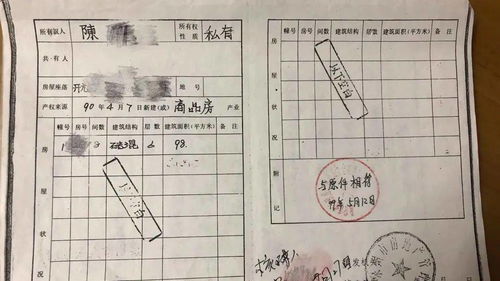 所有权人 陳 所有权性质 私有
共·有人
房屋座落 开 地号
产权来源 90年4月7日新建(或) 商品房 产业
房屋状况
幢号 房号 间数 建筑结构 层数 建筑面积(平方米) 备注
砖混 6 98
以下空白
幢号 房号 间数 建筑结构 层数 建筑面积(平方米) 备注
房屋状况
以下空白
附记
与原件相符
年5月12日
发
市房地产管理